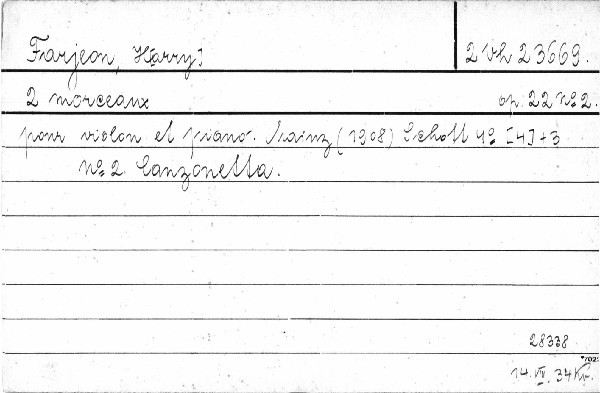 Farjeon, Harry: 2 Vh 23669.
2 morceaux op. 22 no 2.
pour violon et piano. Mainz (1908) Schott 4o [4]+3
no 2 Canzonetta.
28338
14. VI. 34 Kr.